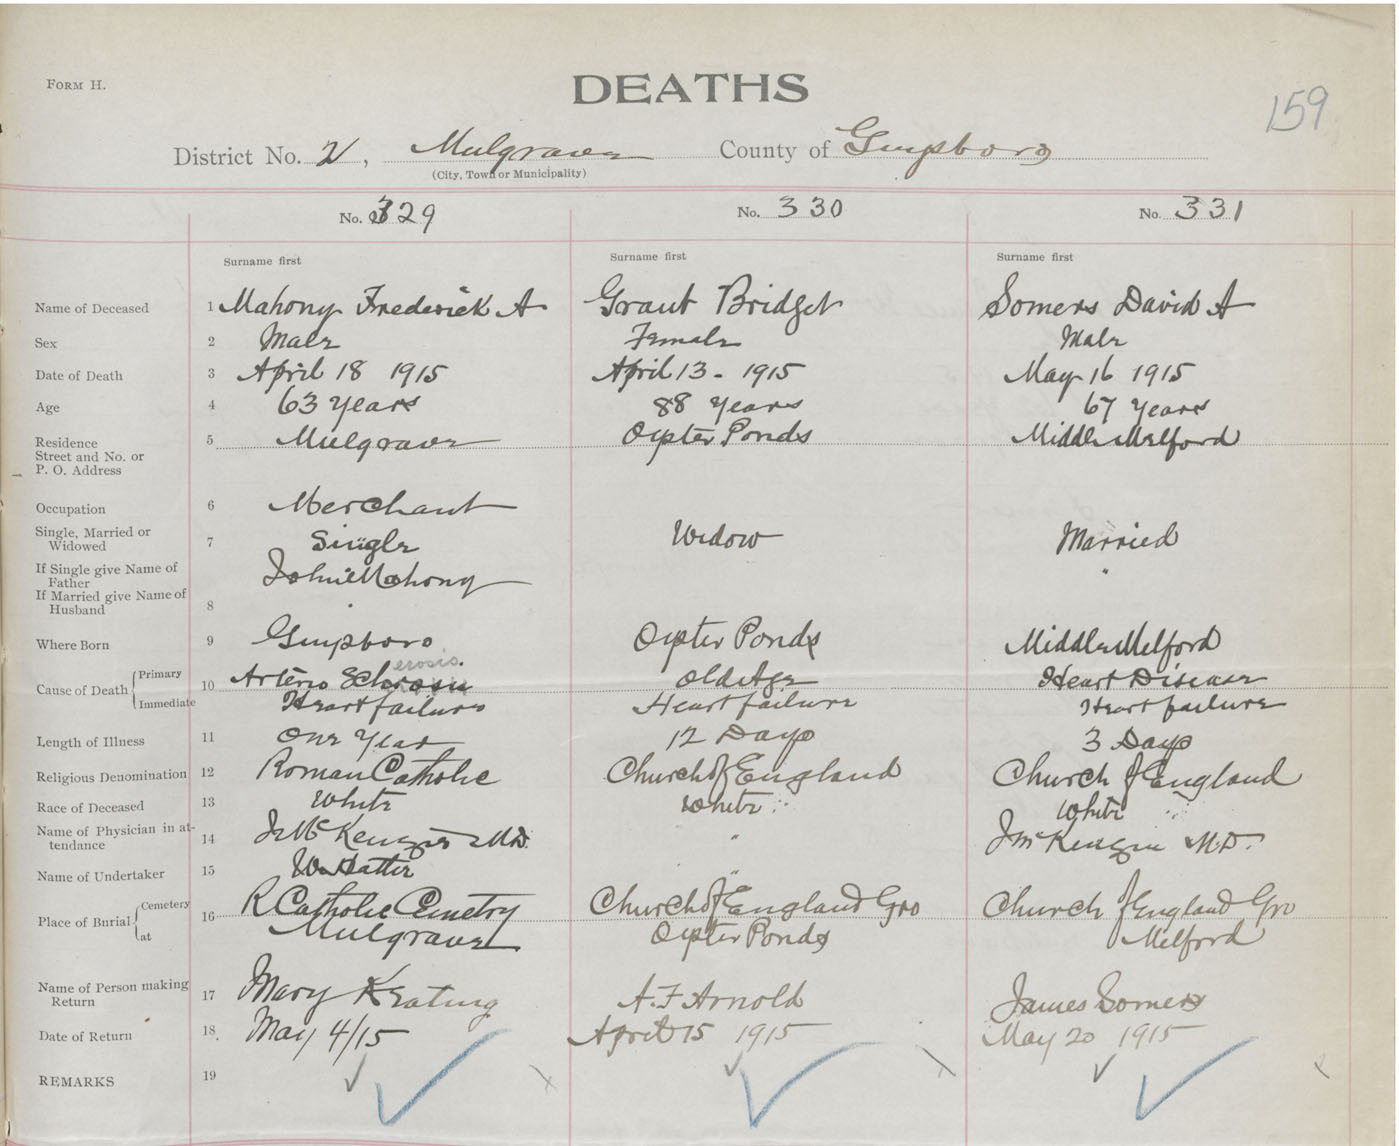 FORM H.
DEATHS
159
District No. 2, Mulgrave County of Guysboro
(City, Town or Municipality)
No. 329 No. 330 No. 331
Surname first Surname first Surname first
Name of Deceased 1 Mahony Frederick A Grant Bridget Somers David A
Sex 2 Male Female Male
Date of Death 3 April 18 1915 April 13 - 1915 May 16 1915
Age 4 63 Years 88 Years 67 Years
Residence 5 Mulgrave Oyster Ponds Middle Melford
Street and No. or
P. O. Address
Occupation 6 Merchant
Single, Married or
Widowed 7 Single Widow Married
If Single give Name of
Father John Mahony "
If Married give Name of
Husband 8
Where Born 9 Guysboro Oyster Ponds Middle Melford
Cause of Death Primary 10 Arterio Sclerosis erosis. Old Age Heart Disease
Immediate Heart failure Heart failure Heart failure
Length of Illness 11 One Year 12 Days 3 Days
Religious Denomination 12 Roman Catholic Church of England Church of England
Race of Deceased 13 White White White
Name of Physician in at-
tendance 14 J McKenzie M.D. " J McKenzie M.D.
Name of Undertaker 15 W Hattie "
Place of Burial Cemetery 16 R Catholic Cemetry Church of England Gro Church of England Gro
at Mulgrave Oyster Ponds Melford
Name of Person making
Return 17 Mary Keating A. F Arnold James Somers
Date of Return 18. May 4/15 April 15 1915 May 20 1915
REMARKS 19